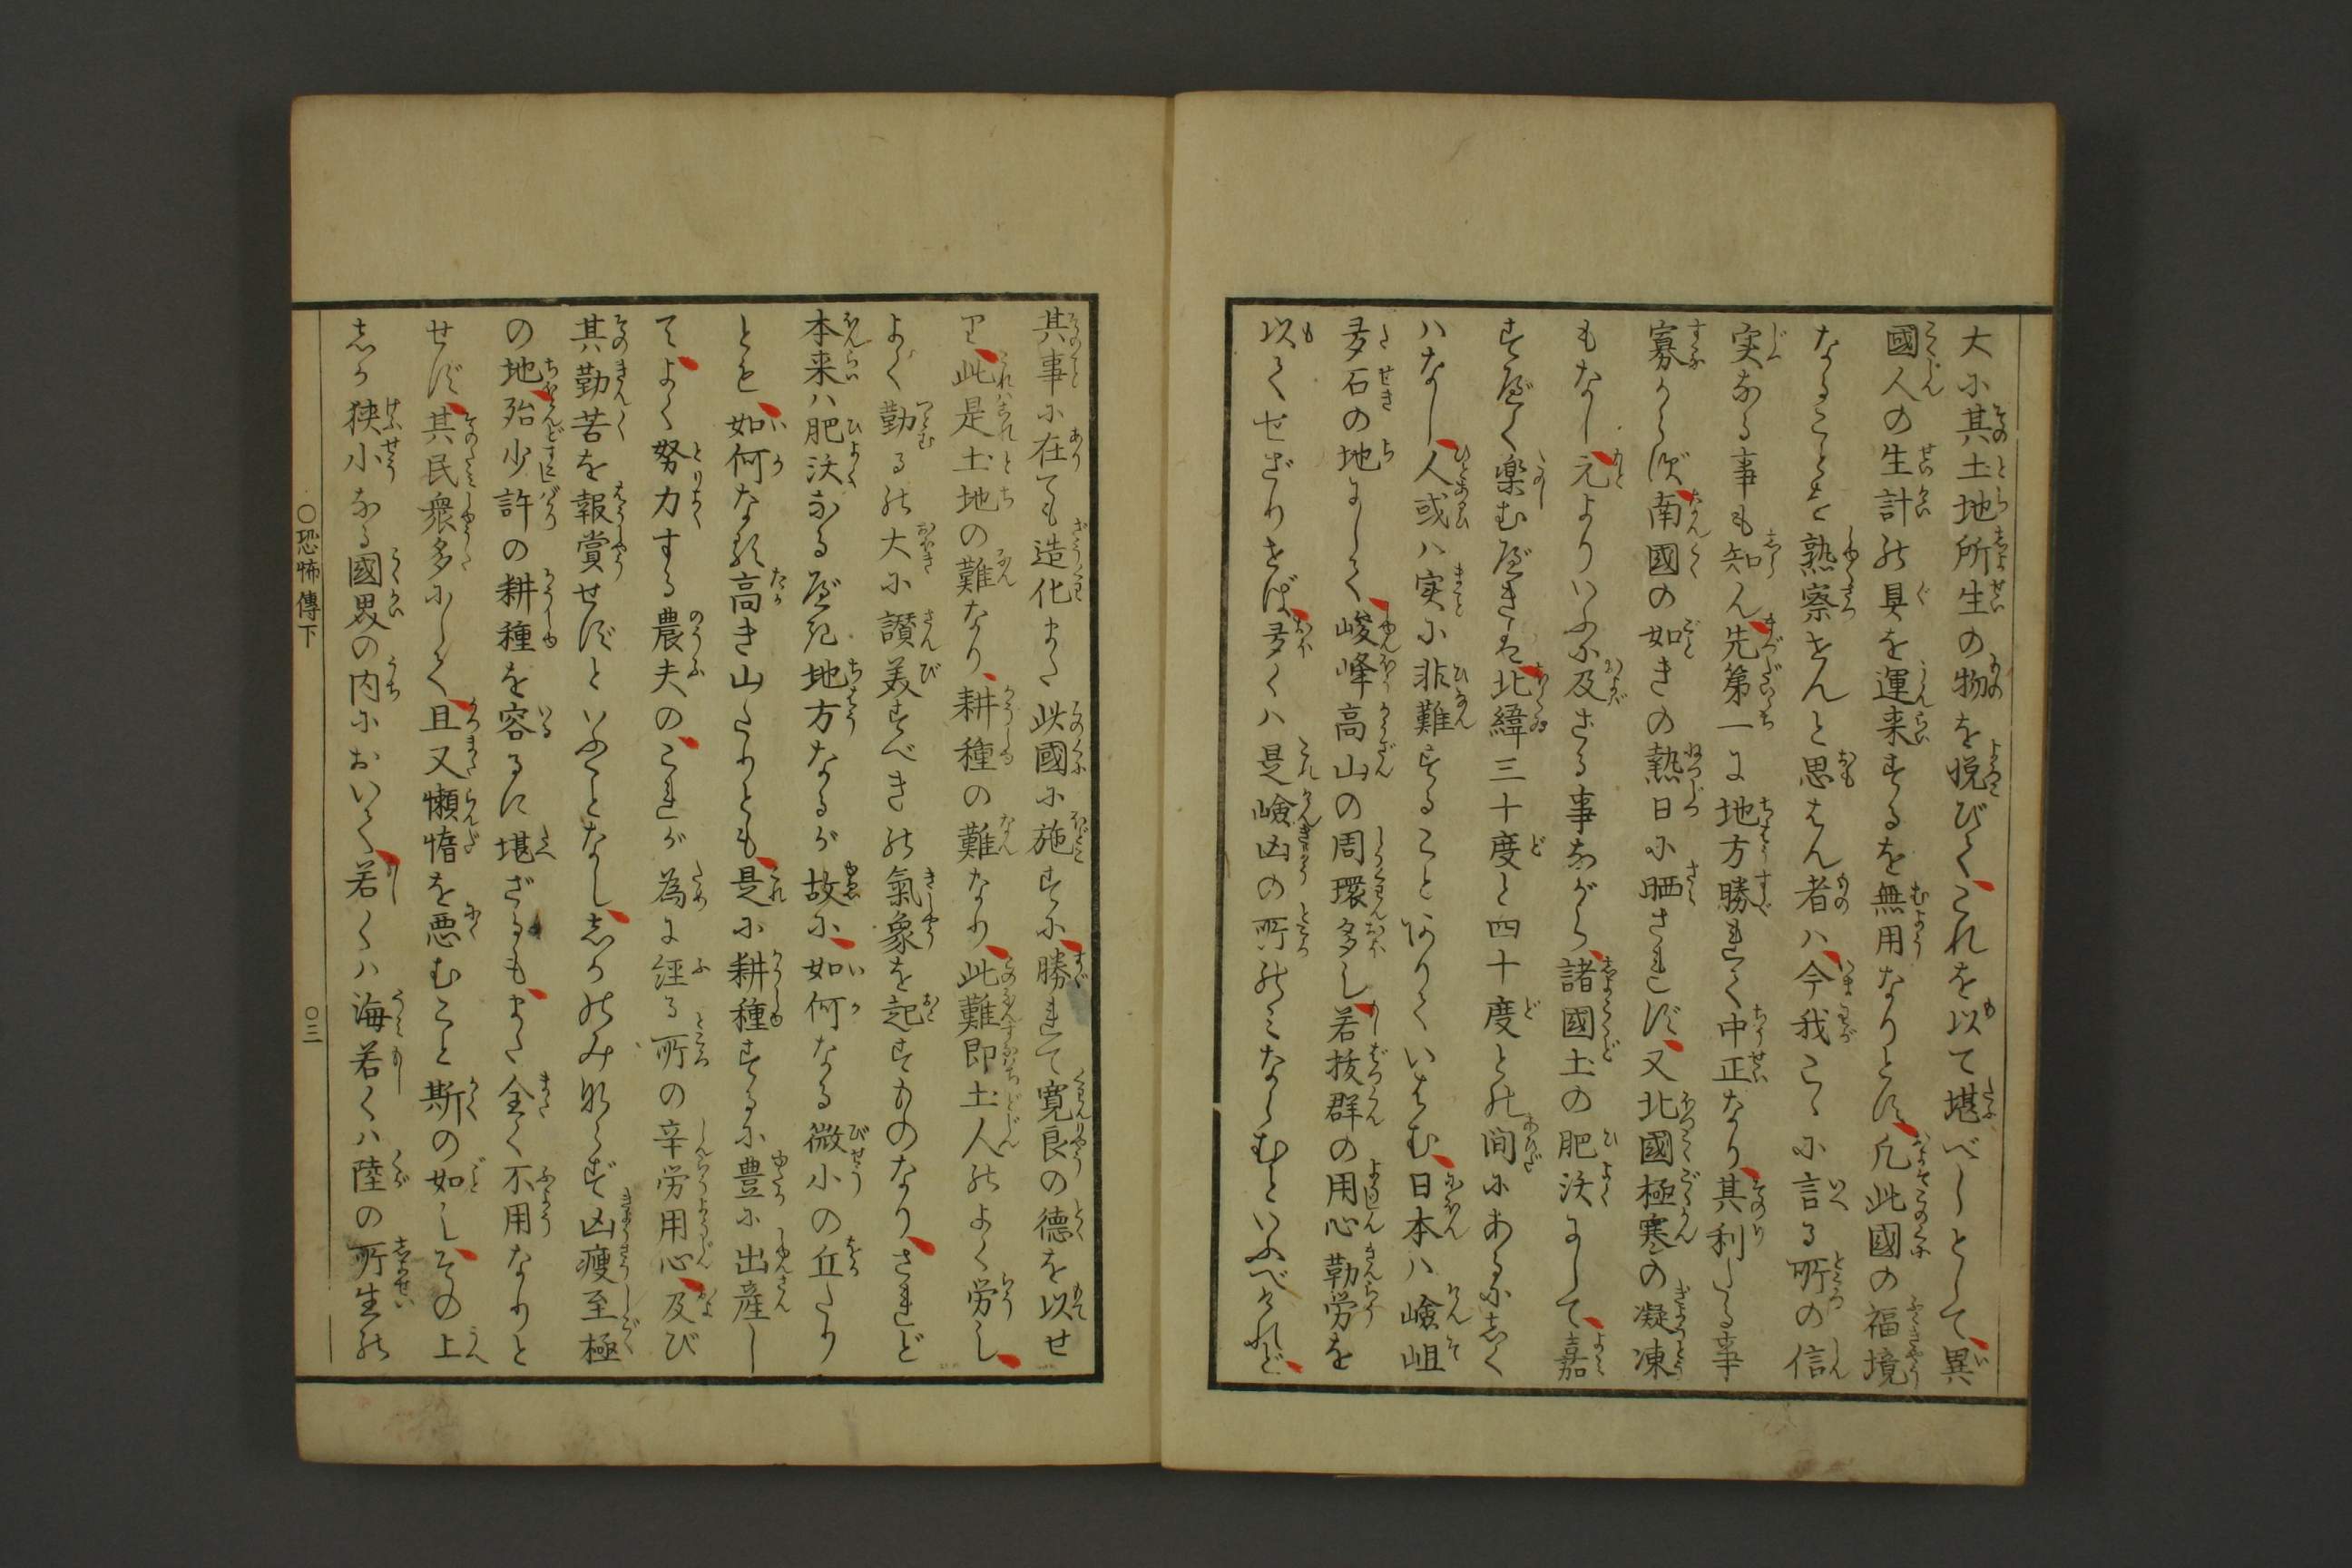 大に其土地所生の物を悦びて、これを以て堪べしとして、異
國人の生計の具を運来するを無用なりとす、凡此國の福境
なることを熟察せんと思はん者ハ、今我こゝに言る所の信
実なる事も知ん、先第一に地方勝れて中正なり、其利たる事
寡からず、南國の如きの熱日に晒されず、又北國極寒の凝凍
もなし、元よりいふに及ざる事ながら、諸國土の肥沃にして、嘉
すべく楽むべきは、北緯三十度と四十度との间にあるにしく
ハなし、人或ハ実に非難することありていはむ、日本ハ嶮岨
多石の地にして、峻峰高山の周環多し、若抜群の用心勤労を
以てせざりせば、多くハ是嶮凶の所のミならむといふべけれど、
其事に在ても造化また此國に施すに、勝れて寛良の徳を以せ
り、此是土地の難なり、耕種の難なり、此難即土人のよく労し、
よく勤るの大に讃美すべきの氣象を起すものなり、されど
本来ハ肥沃なるべき地方なるが故に、如何なる微小の丘たり
とも、如何なる高き山たりとも、是に耕種するに豊に出産し
て、よく努力する農夫の、これが為に經る所の辛労用心、及び
其勤苦を報賞せずといふことなし、しかのみならず凶瘦至極
の地、殆少許の耕種を容るに堪ざるも、また全く不用なりと
せず、其民衆多にして、且又懶惰を悪むこと斯の如し、その上
しか狭小なる國界の内において、若くハ海若くハ陸の所生の
〇恐怖傳下
〇三